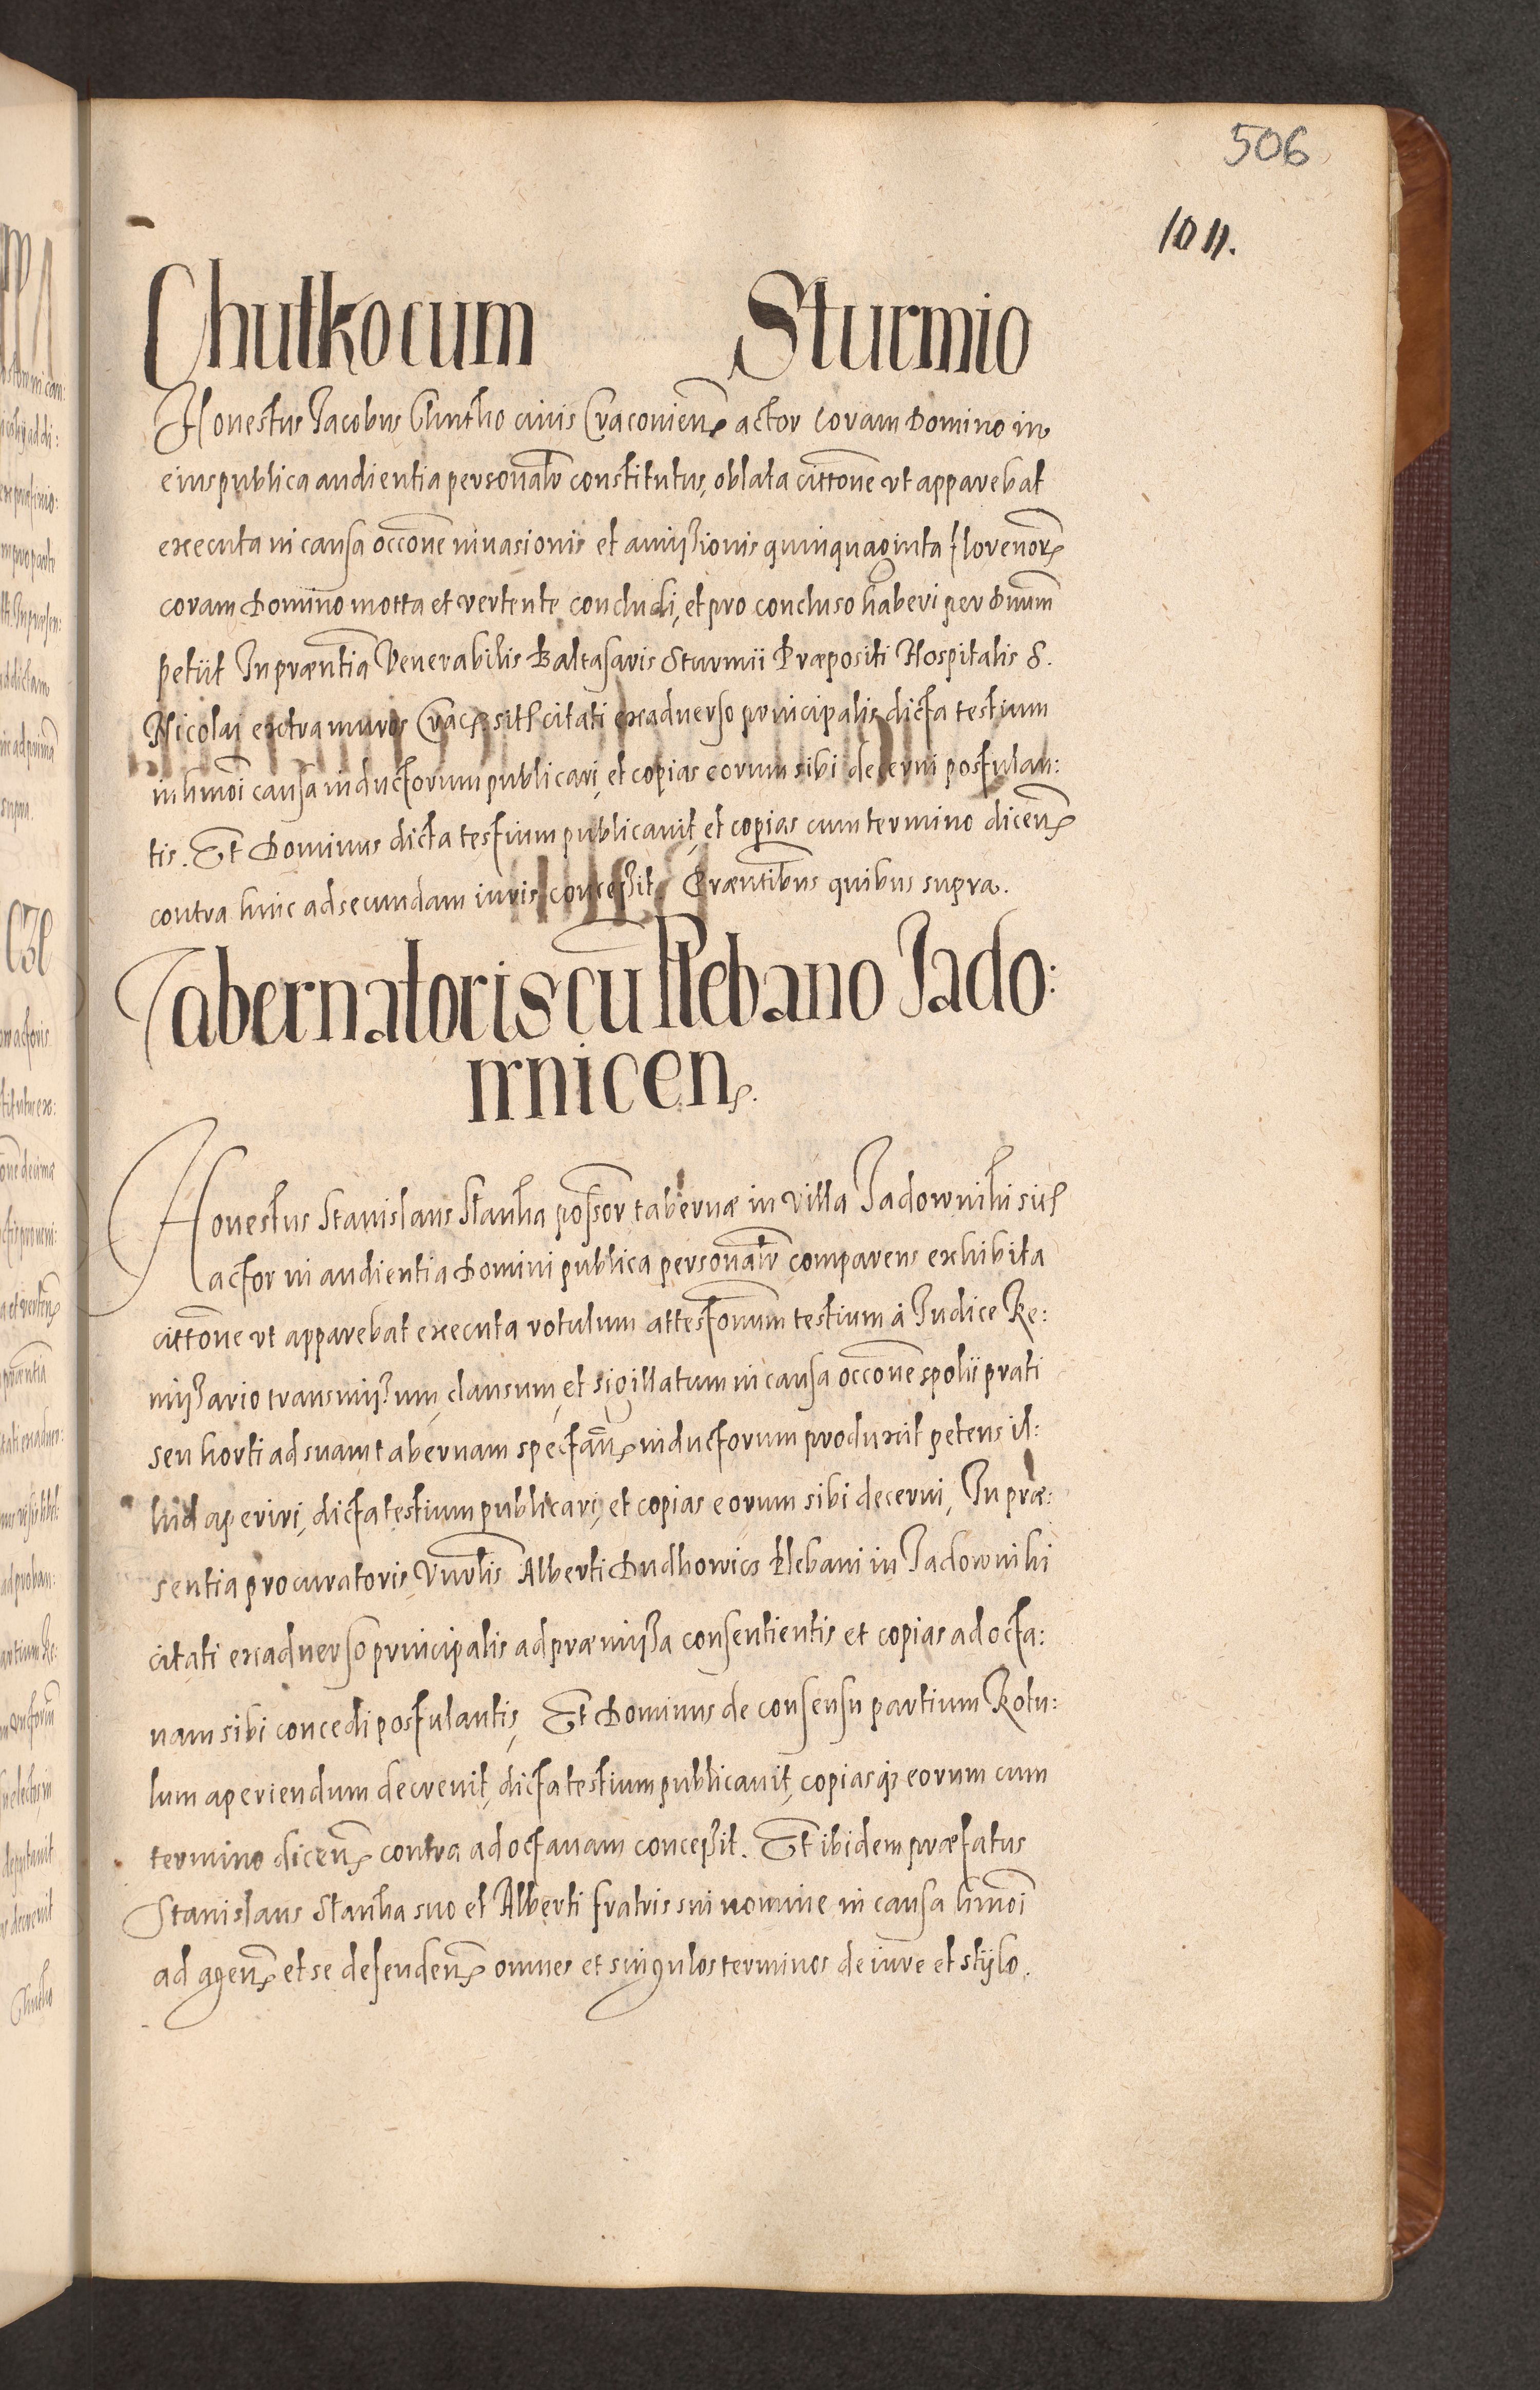 506
1011.
Chutko cum Sturmio
Honestus Jacobus Chutko ciuis Cracovien̄ actor Coram Domino in
eius publica audientia personalr̄ constitutus, oblata cittōne vt apparebat
executa in causa occōne inuasionis et amissionis quinquaginta florenor̄
coram Domino motta et vertente, concludi, et pro concluso haberi per Dnūm
petiit In præntia Venerabilis Baltasaris Sturmii Præpositi Hospitalis S.
Nicolaj extra muros Crac̄. sitt citati ex aduerso principalis dicta testium
in hmōi causa inductorum publicari, et copias eorum sibi decerni postulan:
tis. Et Dominus dicta testium publicauit, et copias cum termino dicen̄
contra hinc ad secundam iuris concessit, Præntibus quibus supra.
Tabernatoris cū Plebano Jado:
wnicen.
Honestus Stanislaus Stanka possor tabernæ in villa Jadowniki sitt
actor in audientia Domini publica personalr̄ comparens exhibita
cittōne vt apparebat executa rotulum attestōnum testium à Judice Re:
missario transmissum, clausum, et sigillatum in causa occōne spolii prati
seu horti ad suam tabernam spectan̄ inductorum produxit petens il:
lud aperiri, dicta testium publicari, et copias eorum sibi decerni, In præ:
sentia procuratoris, Vnrlis Alberti Dudkowicz Plebani in Jadowniki
citati ex aduerso principalis ad præmissa consentientis et copias ad octa:
uam sibi concedi postulantis, Et Dominus de consensu partium Rotu:
lum aperiendum decreuit, dicta testium publicauit, copiasq3 eorum cum
termino dicen̄ contra ad octauam concessit. Et ibidem præfatus
Stanislaus Stanka suo et Alberti fratris sui nomine in causa hmōi
ad agen̄ et se defenden̄ omnes et singulos terminos de iure et stylo.